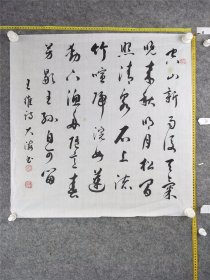 空山新雨後天氣
晚來秋明月松間
照清泉石上流
竹喧歸浣女蓮
動下漁舟隨意春
芳歇王孫自可留
王維詩 大海書